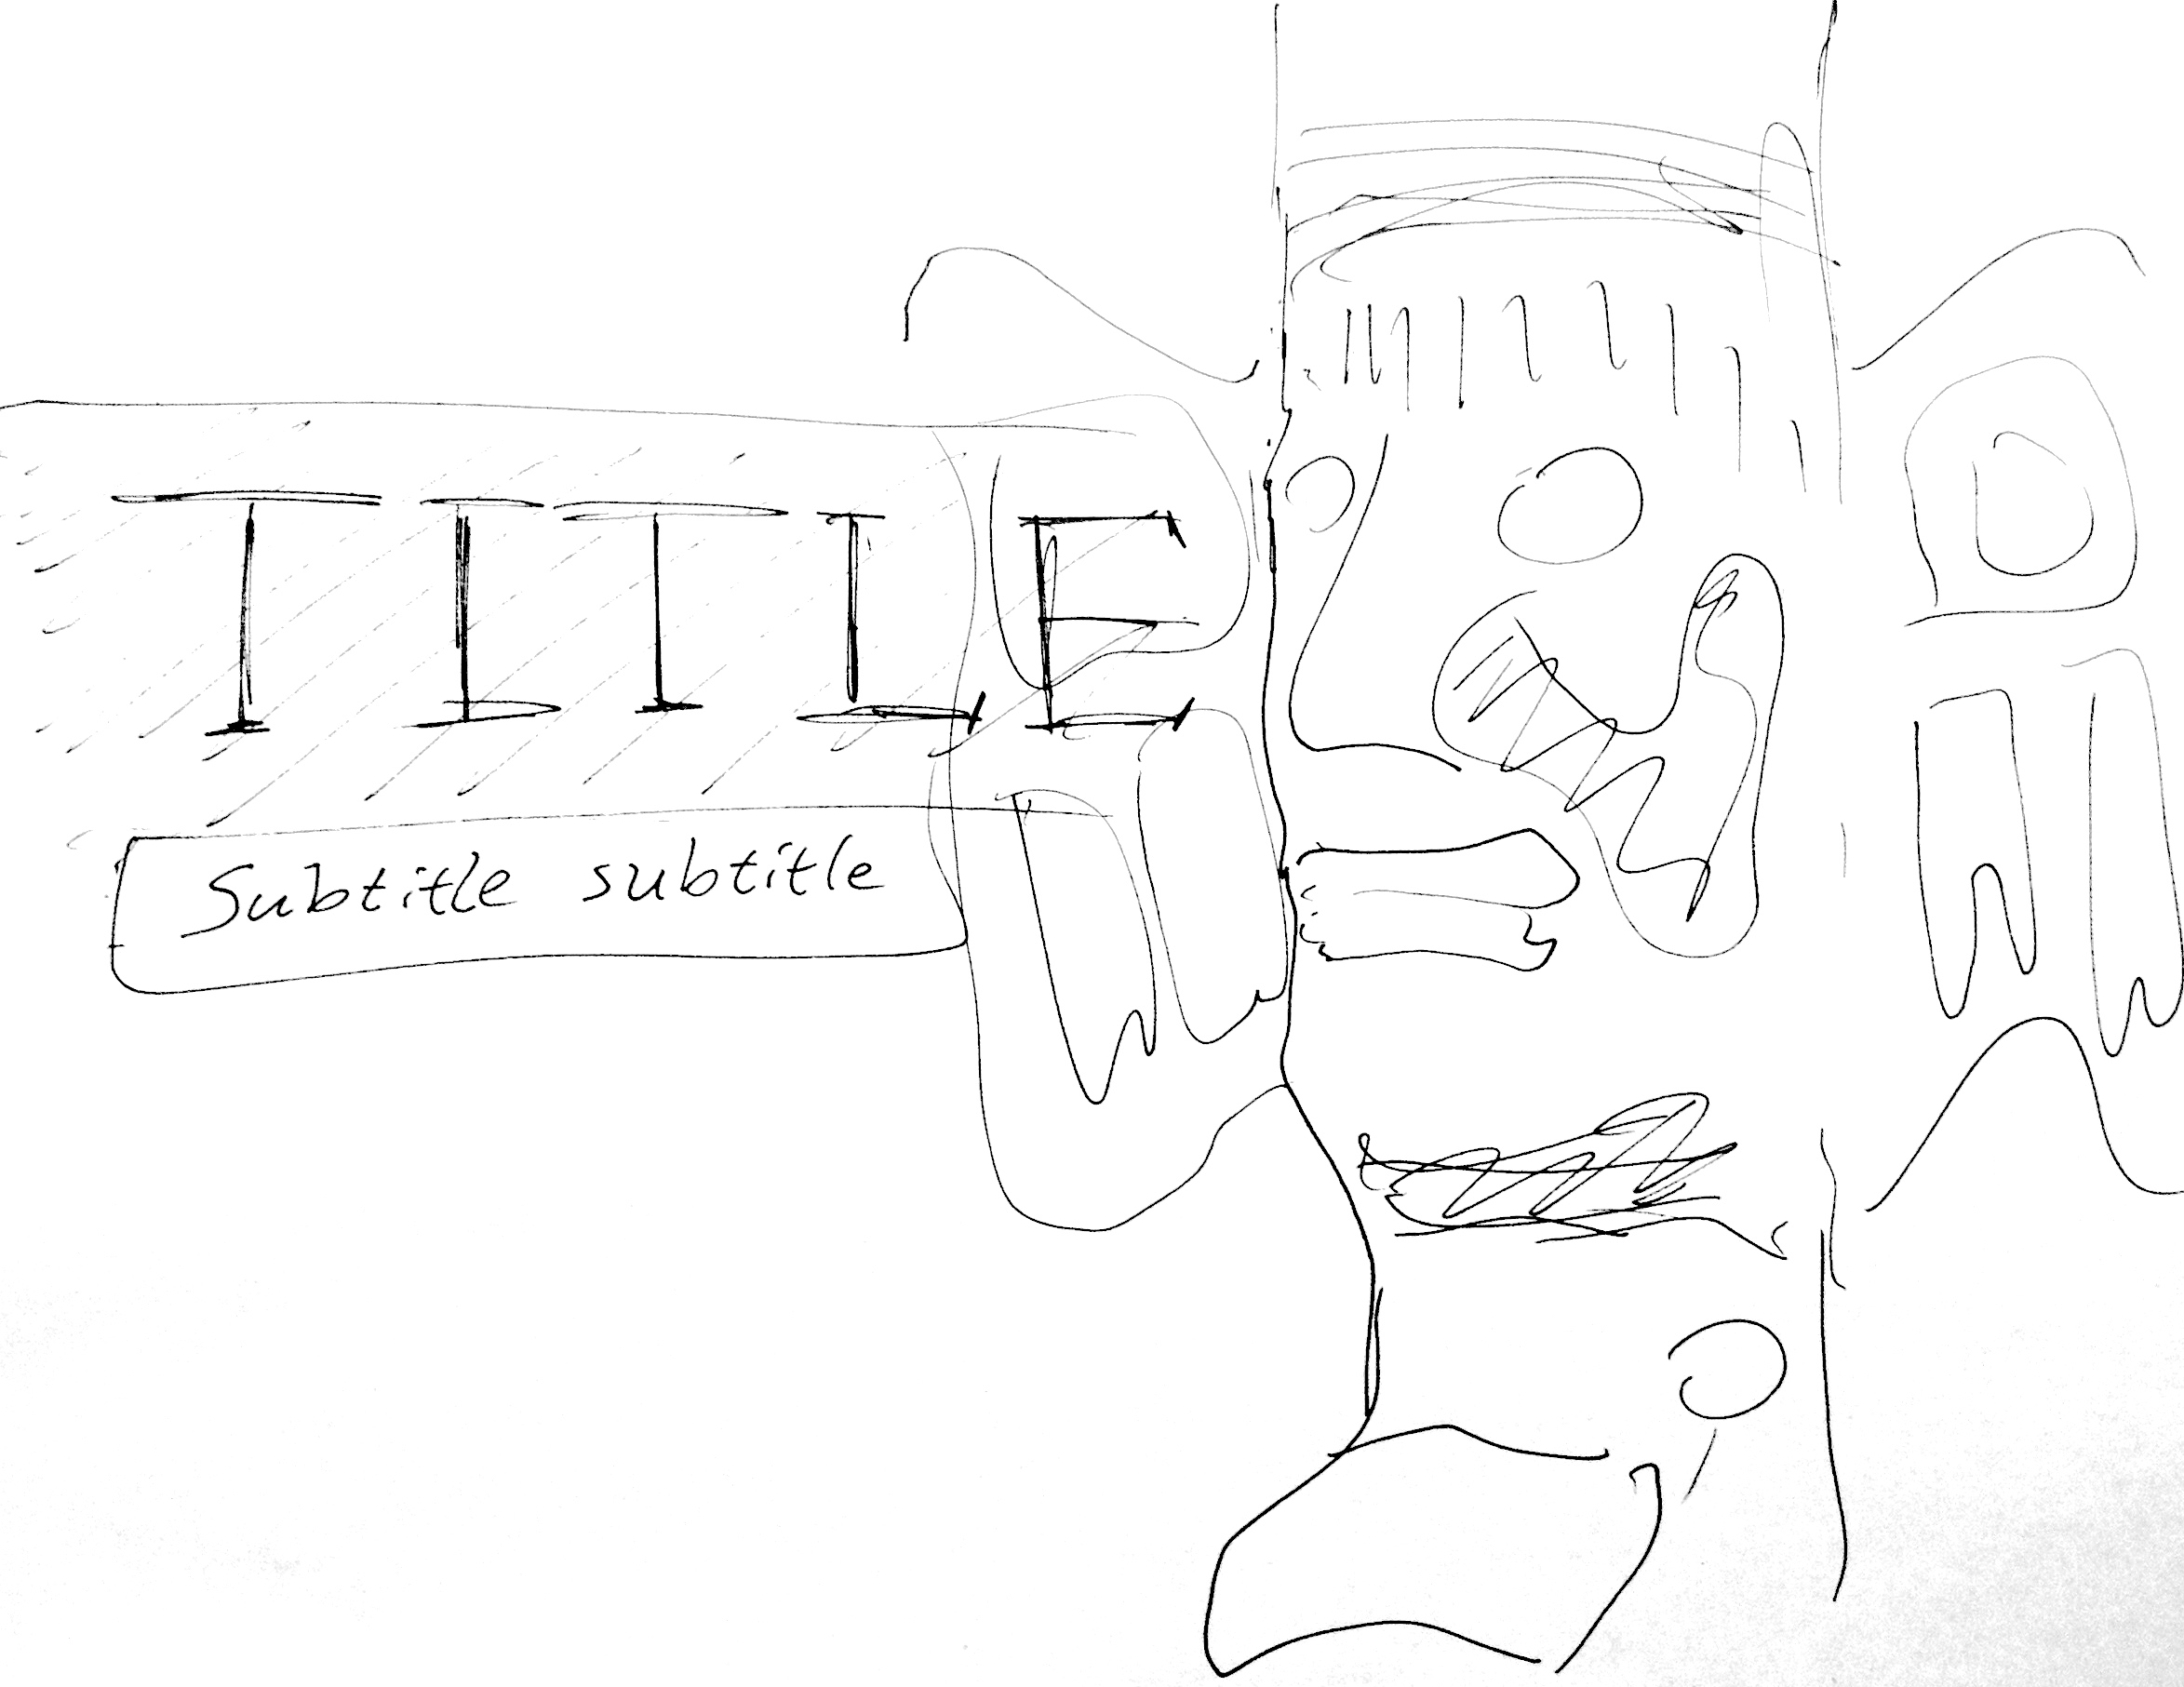 TITLE
Subtitle subtitle